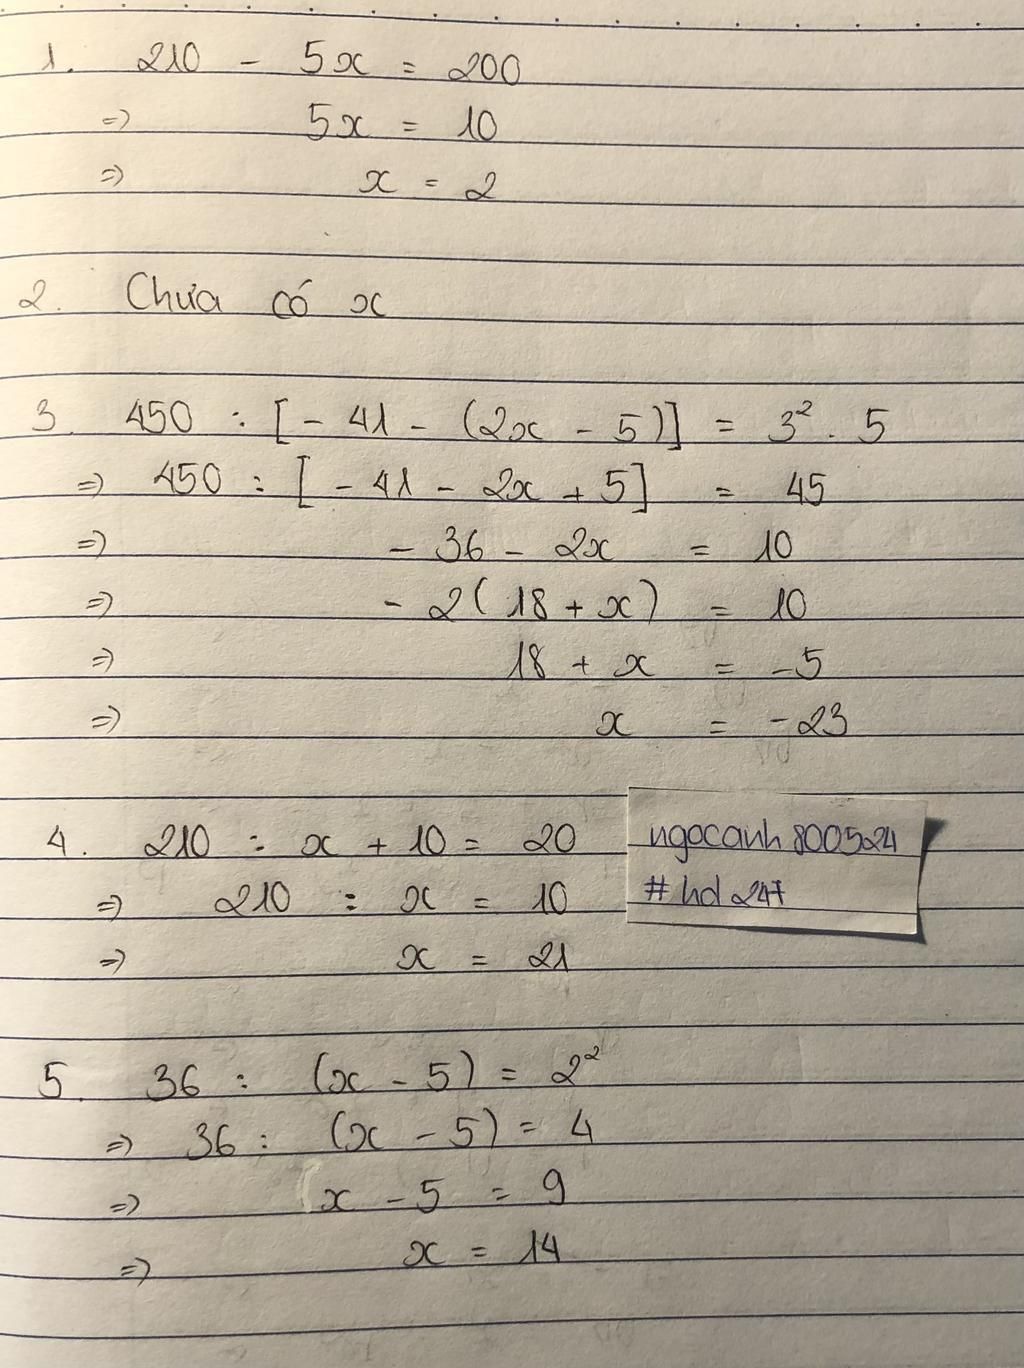 1. 210 - 5x = 200
=> 5x = 10
=> x = 2
2. Chưa có x
3. 450 : [- 41 - (2x - 5)] = 3² . 5
=> 450 : [- 41 - 2x + 5] = 45
=> - 36 - 2x = 10
=> - 2(18 + x) = 10
=> 18 + x = -5
=> x = -23
4. 210 : x + 10 = 20
=> 210 : x = 10
=> x = 21
ngocanh800524
#hd247
5. 36 : (x - 5) = 2²
=> 36 : (x - 5) = 4
=> x - 5 = 9
=> x = 14